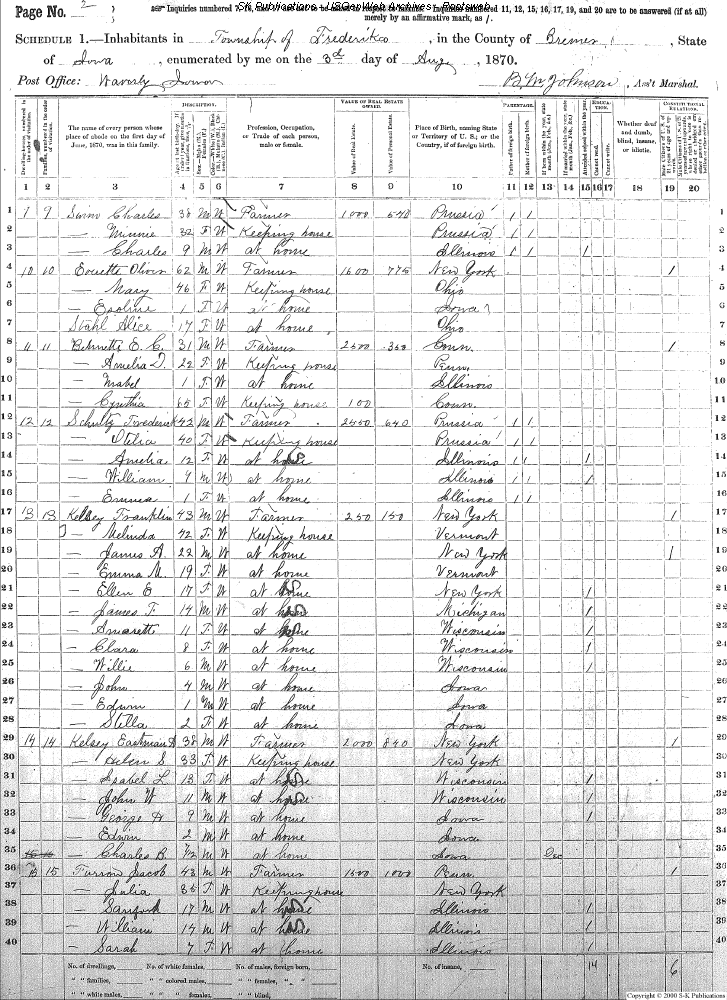 S-K Publications / USGenWeb Archives - Rootsweb
Page No. 2
Inquiries numbered 7, 16, and 17 are not to be asked in respect to infants. Inquiries numbered 11, 12, 15, 16, 17, 19, and 20 are to be answered (if at all)
merely by an affirmative mark, as /.
SCHEDULE 1.—Inhabitants in Township of Frederika, in the County of Bremer, State
of Iowa, enumerated by me on the 3rd day of Aug, 1870.
Post Office: Waverly Iowa B. M. Johnson, Ass't Marshal.
Dwelling-houses, numbered in the order of visitation.
Families, numbered in the order of visitation.
The name of every person whose place of abode on the first day of June, 1870, was in this family.
DESCRIPTION.
Profession, Occupation, or Trade of each person, male or female.
VALUE OF REAL ESTATE OWNED.
Value of Real Estate.
Value of Personal Estate.
Place of Birth, naming State or Territory of U. S.; or the Country, if of foreign birth.
PARENTAGE.
Father of foreign birth.
Mother of foreign birth.
If born within the year, state month (Jan., Feb., &c.)
If married within the year, state month (Jan., Feb., &c.)
EDUCATION.
Attended school within the year.
Cannot read.
Cannot write.
Whether deaf and dumb, blind, insane, or idiotic.
CONSTITUTIONAL RELATIONS.
1 2 3 4 5 6 7 8 9 10 11 12 13 14 15 16 17 18 19 20
1 9 Charles 38 M W Farmer 1000 540 Prussia 1 1 1
2 — Minnie 32 F W Keeping house Prussia 1 1 2
3 — Charles 9 M W at home Illinois 1 1 / 3
4 10 10 Oliver 62 M W Farmer 1600 775 New York / 4
5 — Mary 46 F W Keeping house Ohio 5
6 — 1 F W at home Iowa 6
7 Stahl Alice 17 F W at home Ohio 7
8 11 11 E. C. 31 M W Farmer 2500 Conn. / 8
9 — Amelia D. 22 F W Keeping house Penn. 9
10 — Mabel 1 F W at home Illinois 10
11 — Cynthia 65 F W Keeping house 100 Conn. 11
12 12 12 Schultz Frederick 42 M W Farmer 2450 640 Prussia 1 1 12
13 — 40 F W Keeping house Prussia 1 1 13
14 — Amelia 12 F W at home Illinois 1 1 / 14
15 — William 9 M W at home Illinois 1 1 / 15
16 — Emma 1 F W at home Illinois 1 1 16
17 13 13 Kelsey Franklin 43 M W Farmer 250 150 New York / 17
18 — Melinda 42 F W Keeping house Vermont 18
19 — James A 22 M W at home New York / 19
20 — Emma M. 19 F W at home Vermont 20
21 — Ellen E 17 F W at home New York / 21
22 — James F. 14 M W at home Michigan / 22
23 — Amarett 11 F W at home Wisconsin / 23
24 — Clara 8 F W at home Wisconsin / 24
25 — Willie 6 M W at home Wisconsin / 25
26 — John 4 M W at home Iowa 26
27 — Edwin 1 M W at home Iowa 27
28 — Stella 2 F W at home Iowa 28
29 14 14 Kelsey Eastman A 38 M W Farmer 2000 840 New York / 29
30 — Helen S 33 F W Keeping house New York 30
31 — Isabel L 13 F W at home Wisconsin / 31
32 — John W 11 M W at home Wisconsin / 32
33 — George H 9 M W at home Iowa / 33
34 — Edwin 2 M W at home Iowa 34
35 — Charles B. 7/12 M W at home Iowa Dec 35
36 15 15 Farrow Jacob 43 M W Farmer 1500 1000 Penn. / 36
37 — Julia 35 F W Keeping house New York 37
38 — Sanford 17 M W at home Illinois / 38
39 — William 14 M W at home Illinois / 39
40 — Sarah 7 F W at home Illinois / 40
No. of dwellings, No. of white females, No. of males, foreign born, No. of insane, 14 6
" " families, " " colored males, " " females, " "
" " white males, " " " females, " " blind,
Copyright © 2000 S-K Publications